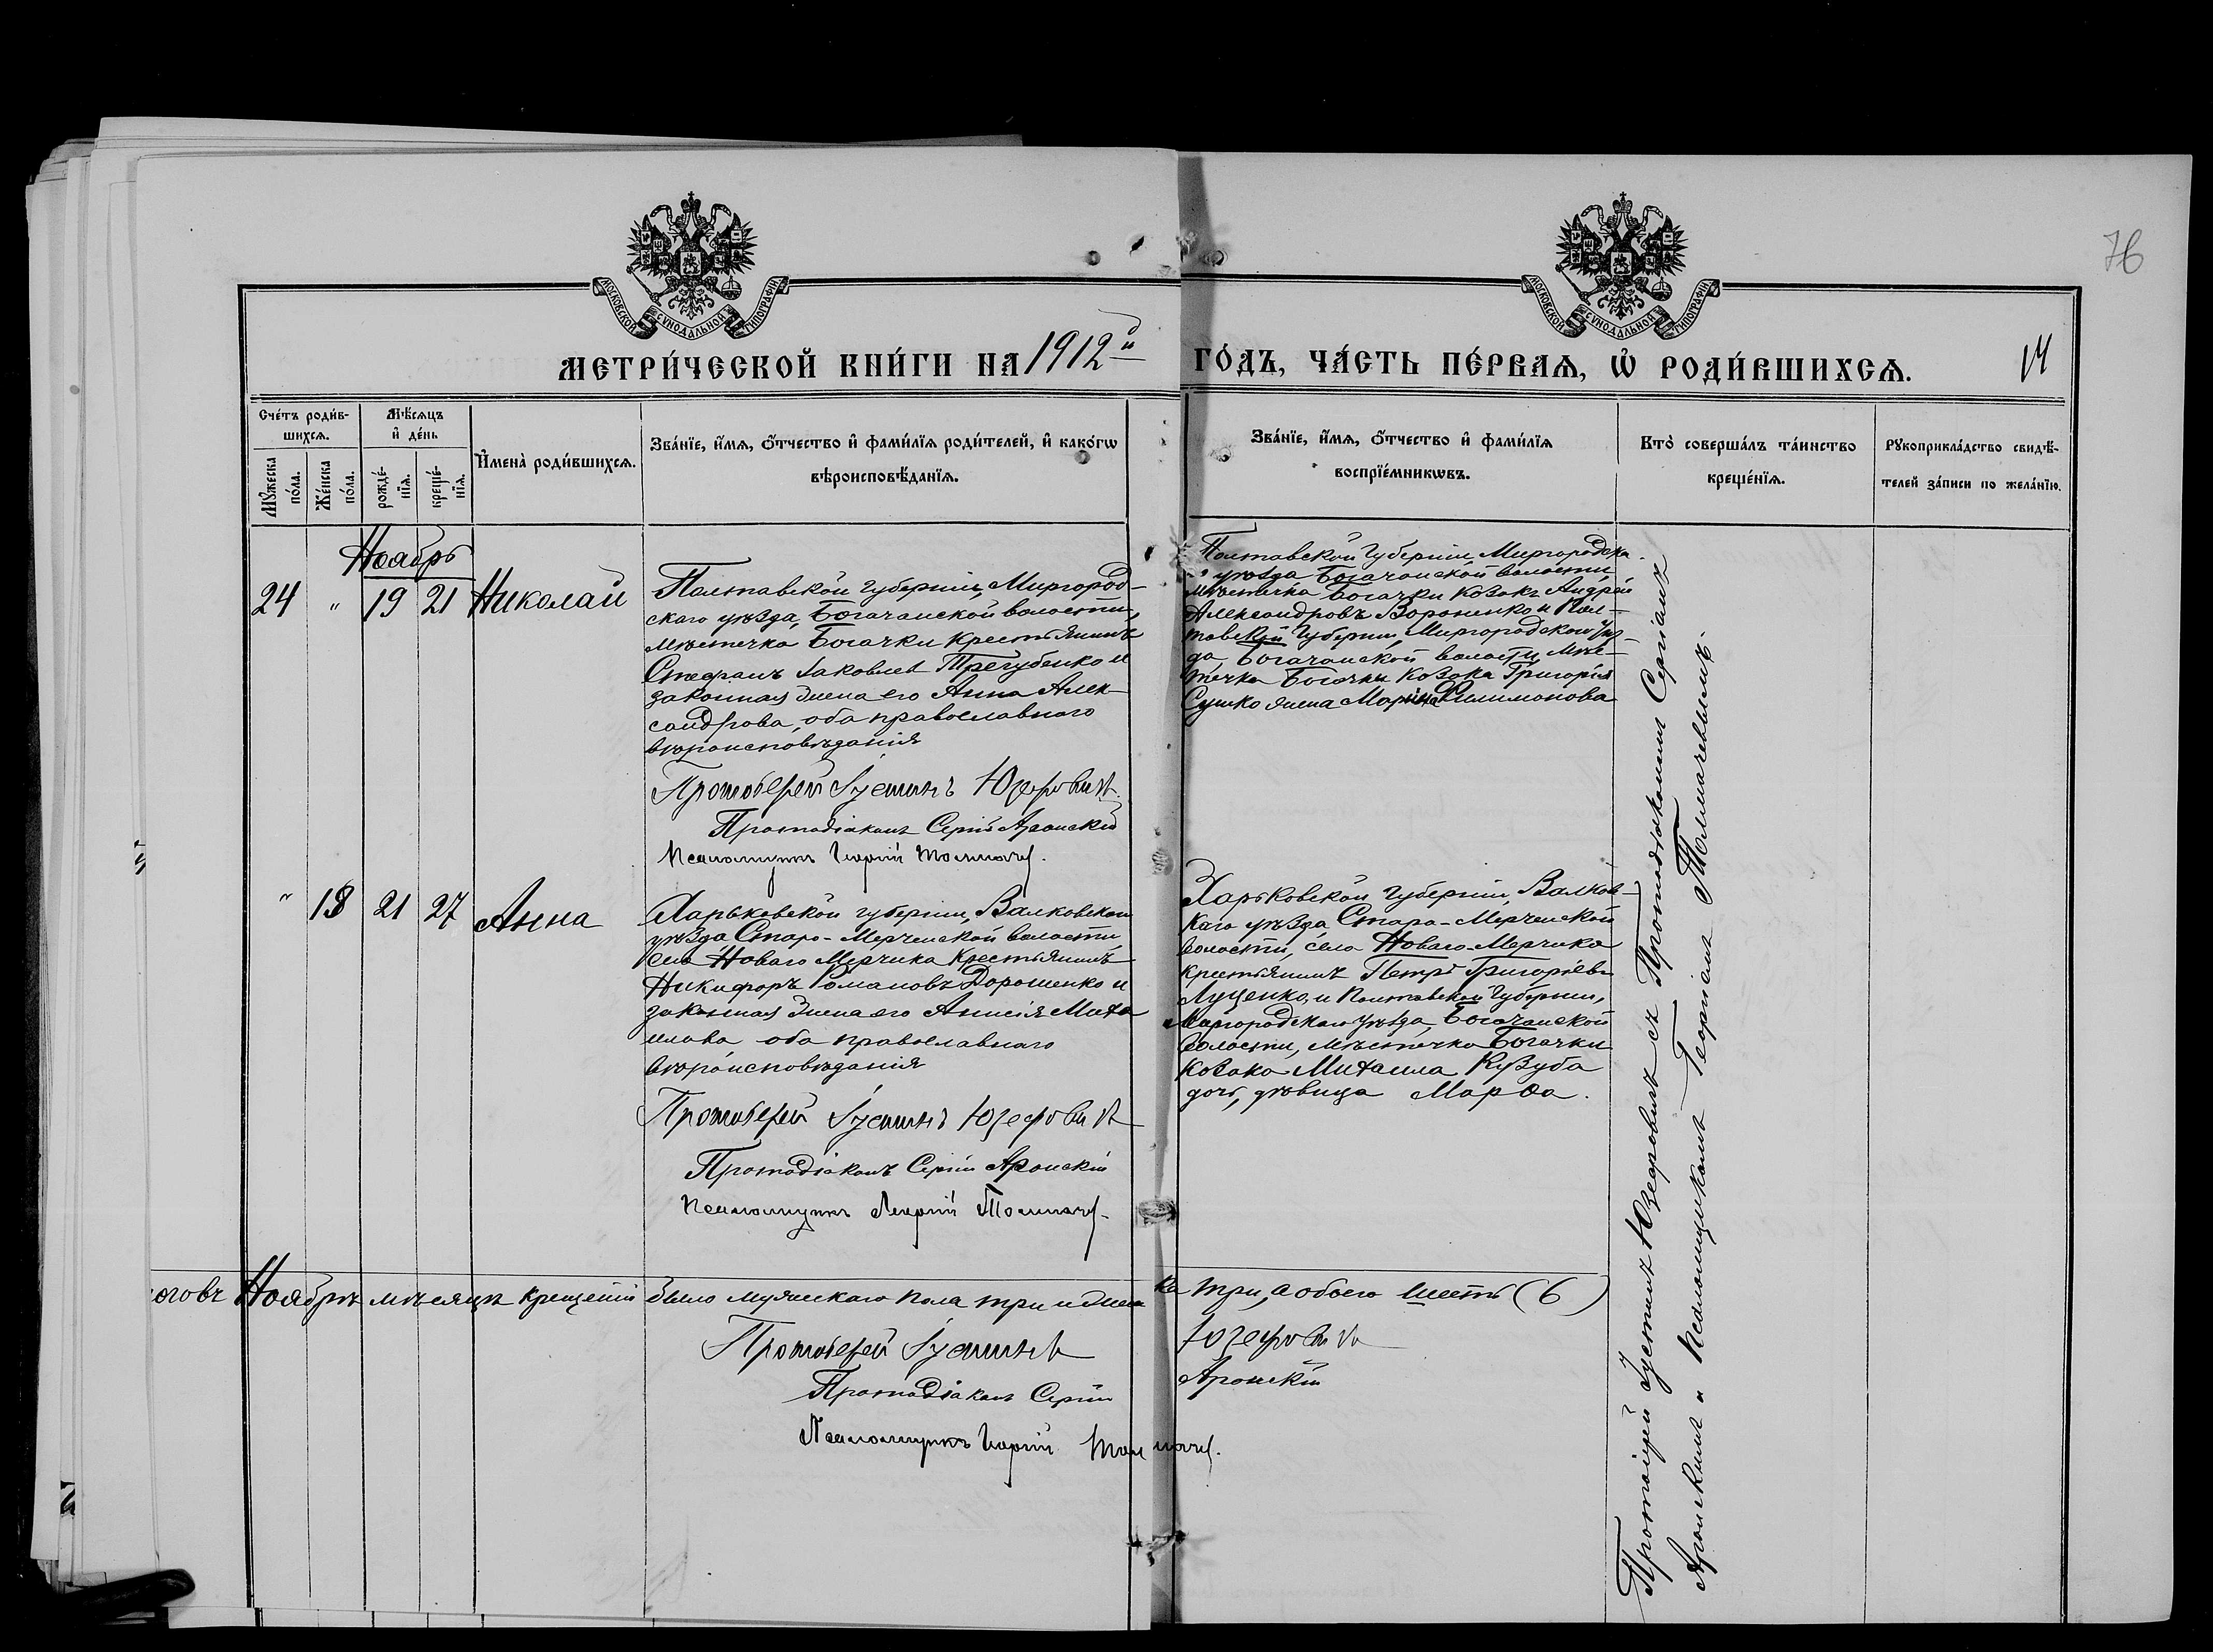 76
МОСКОВСКОЙ СѴНОДАЛЬНОЙ ТИПОГРАФІИ
МОСКОВСКОЙ СѴНОДАЛЬНОЙ ТИПОГРАФІИ
МЕТРИ́ЧЕСКОЙ КНИ́ГИ НА 1912й ГО́ДЪ, ЧА́СТЬ ПЕ́РВАѦ, Ѡ РОДИ́ВШИХСѦ.
Сче́тъ роди́в-
шихсѧ.
Мꙋжеска
по́ла.
Же́нска
по́ла.
Мѣ́сѧцъ
и҆ де́нь
рожде́-
нїѧ.
креще́-
нїѧ.
И҆мена̀ роди́вшихсѧ.
Зва́нїе, и҆́мѧ, ѻ҆́тчество и҆ фами́лїѧ роди́телей, и҆ како́гѡ
вѣроисповѣ́данїѧ.
Зва́нїе, и҆́мѧ, ѻ҆́тчество и҆ фами́лїѧ
воспрїе́мникѡвъ.
Кто̀ соверша́лъ та́инство
креще́нїѧ.
Рꙋкоприкла́дство свидѣ́-
телей за́писи по жела́нїю.
Ноябрь
24 " 19 21 Николай
Полтавской губерніи, Миргород-
скаго уѣзда, Богачанской волости,
мѣстечка Богачки крестьянинъ
Стефанъ Іаковлев Трегубенко и
законная жена его Анна Алек-
сандрова, оба православнаго
вѣроисповѣданія
Протоіерей Іустинъ Юзефовичъ
Протодіаконъ Сергій Аронскій
Псаломщикъ Георгій Толмачев.
Полтавской Губерніи, Миргородска-
уѣзда Богачанской волости
мѣстечка Богачки козакъ Андрей
Александровъ Вороненко и Пол-
тавской Губерніи, Миргородскаго уѣз-
да, Богачанской волости, мѣс-
течка Богачки козака Григорія
Сушко жена Марина Филимонова
" 18 21 27 Анна
Харьковской губерніи, Валковскаго
уѣзда, Старо-Мерчанской волости
села Новаго Мерчика крестьянинъ
Никифоръ Романовъ Дорошенко и
законная жена его Анисія Миха
илова оба православнаго
вѣроисповѣданія
Протоіерей Іустинъ Юзефовичъ
Протодіаконъ Сергій Аронскій
Псаломщикъ Георгій Толмачев
Харьковской Губерніи, Валков-
каго уѣзда, Старо-Мерчанской
волости, села Новаго-Мерчика
крестьянинъ Петръ Григоріевъ
Луценко, и Полтавской Губерніи,
Миргородскаго уѣзда, Богачанской
волости, мѣстечка Богачки
козака Михаила Кузуба
дочь, дѣвица Марѳа.
Протоіерей Іустинъ Юзефовичъ съ Протодіакономъ Сергіемъ
Аронскимъ и Псаломщикомъ Георгіемъ Толмачевымъ.
оговъ Ноябрѣ мѣсяцѣ крещеній было мужескаго пола три и женска три, а обоего шесть (6)
Протоіерей Іустинъ Юзефовичъ
Протодіаконъ Сергій Аронскій
Псаломщикъ Георгій Толмачев.